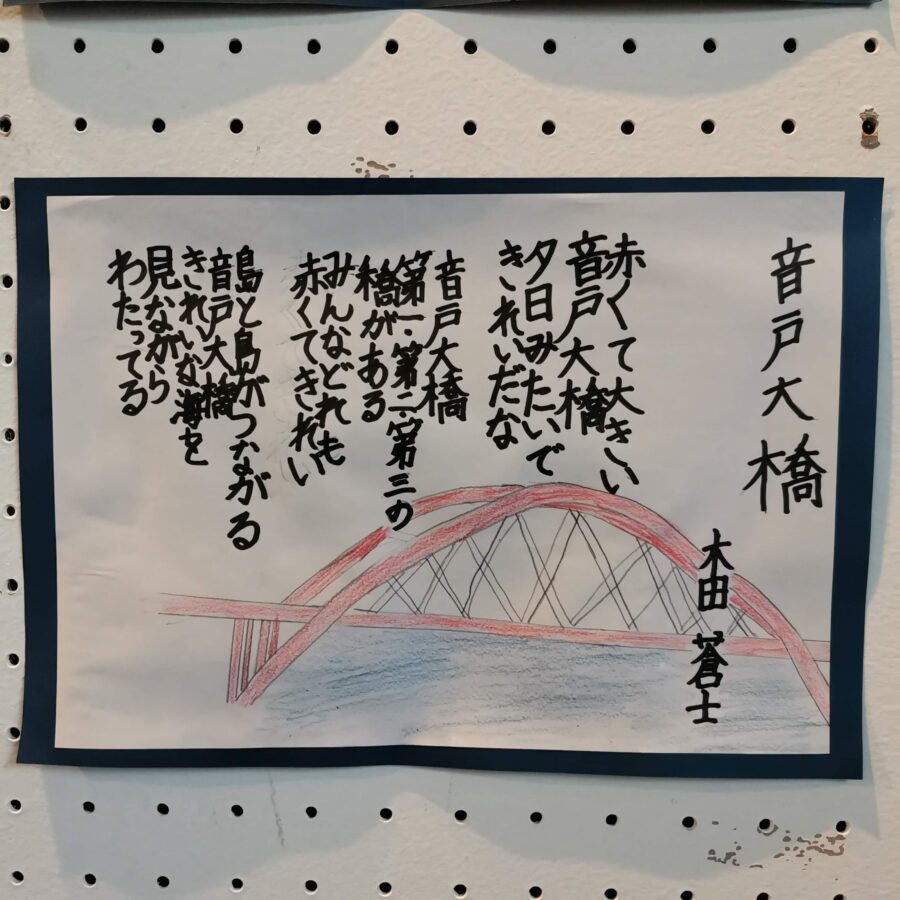 音戸大橋
木田蒼士
赤くて大きい
音戸大橋
夕日みたいで
きれいだな
音戸大橋
第一・第二・第三の
橋がある
みんなどれも
赤くてきれい
島と島がつながる
音戸大橋
きれいな海を
見ながら
わたってる